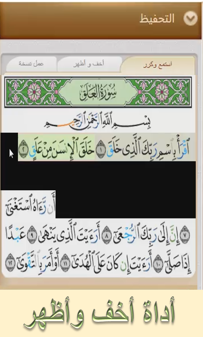 التحفيظ
استمع وكرر
أخف و أظهر
عمل نسخة
سُورَةُ العَلَقِ
بِسْمِ اللَّهِ الرَّحْمَٰنِ الرَّحِيمِ
ٱقْرَأْ بِٱسْمِ رَبِّكَ ٱلَّذِى خَلَقَ ۝١ خَلَقَ ٱلْإِنسَٰنَ مِنْ عَلَقٍ ۝٢
أَن رَّءَاهُ ٱسْتَغْنَىٰٓ
۝٧ إِنَّ إِلَىٰ رَبِّكَ ٱلرُّجْعَىٰٓ ۝٨ أَرَءَيْتَ ٱلَّذِى يَنْهَىٰ ۝٩ عَبْدًا
إِذَا صَلَّىٰٓ ۝١٠ أَرَءَيْتَ إِن كَانَ عَلَى ٱلْهُدَىٰٓ ۝١١ أَوْ أَمَرَ بِٱلتَّقْوَىٰٓ ۝١٢
أداة أخف وأظهر